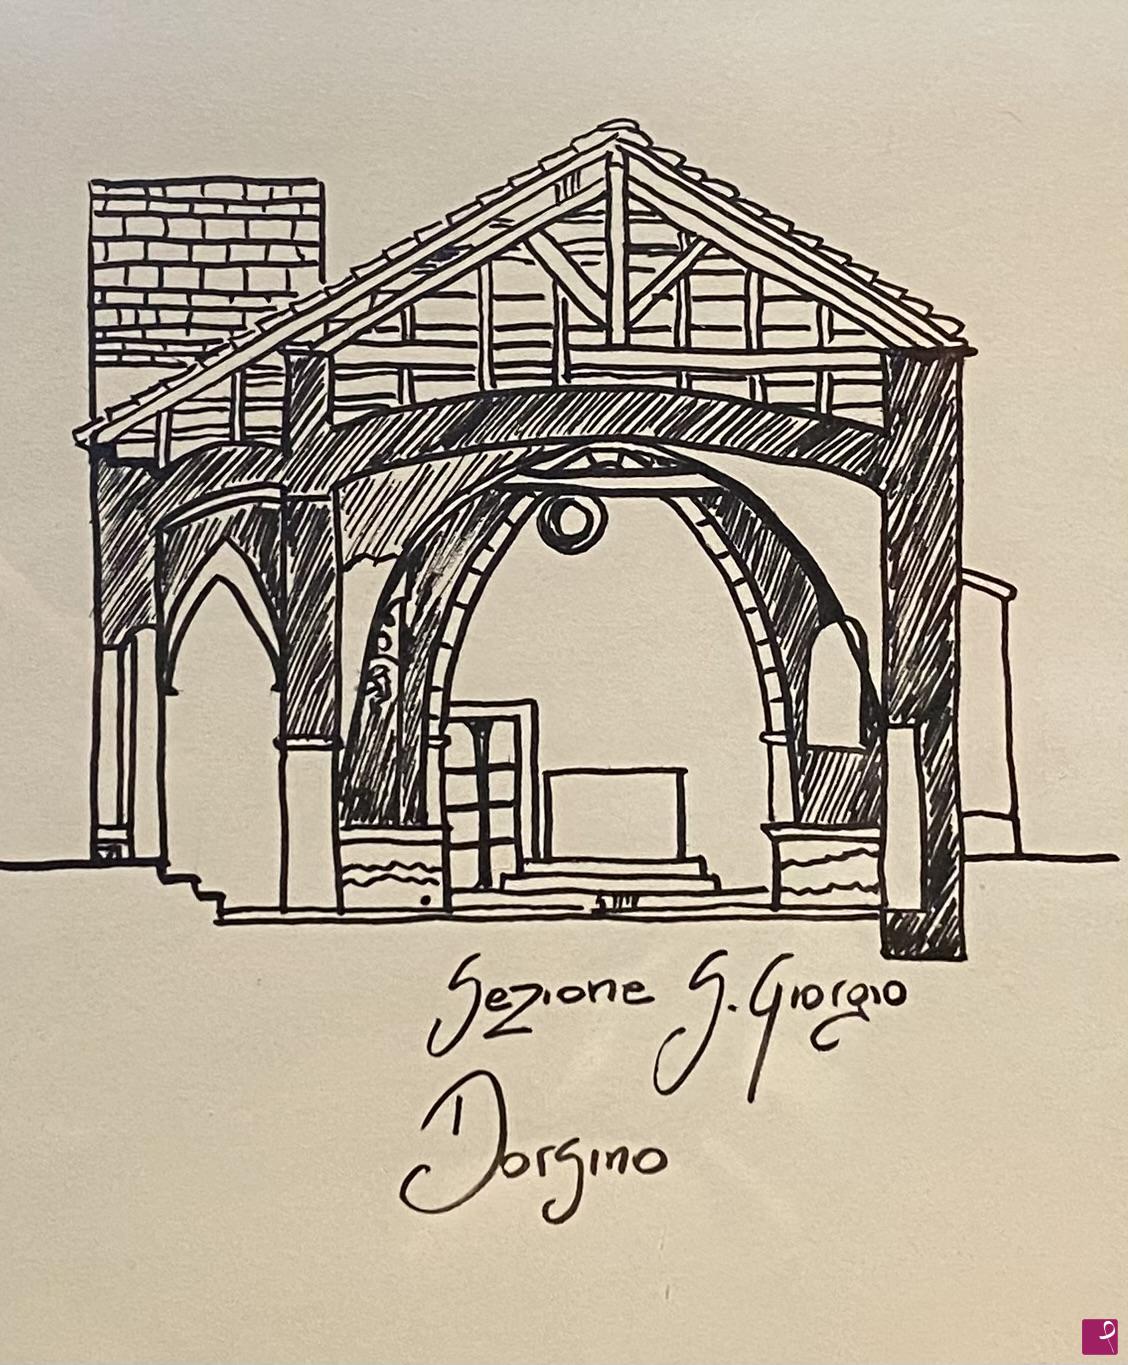 Sezione S. Giorgio
Dorgino